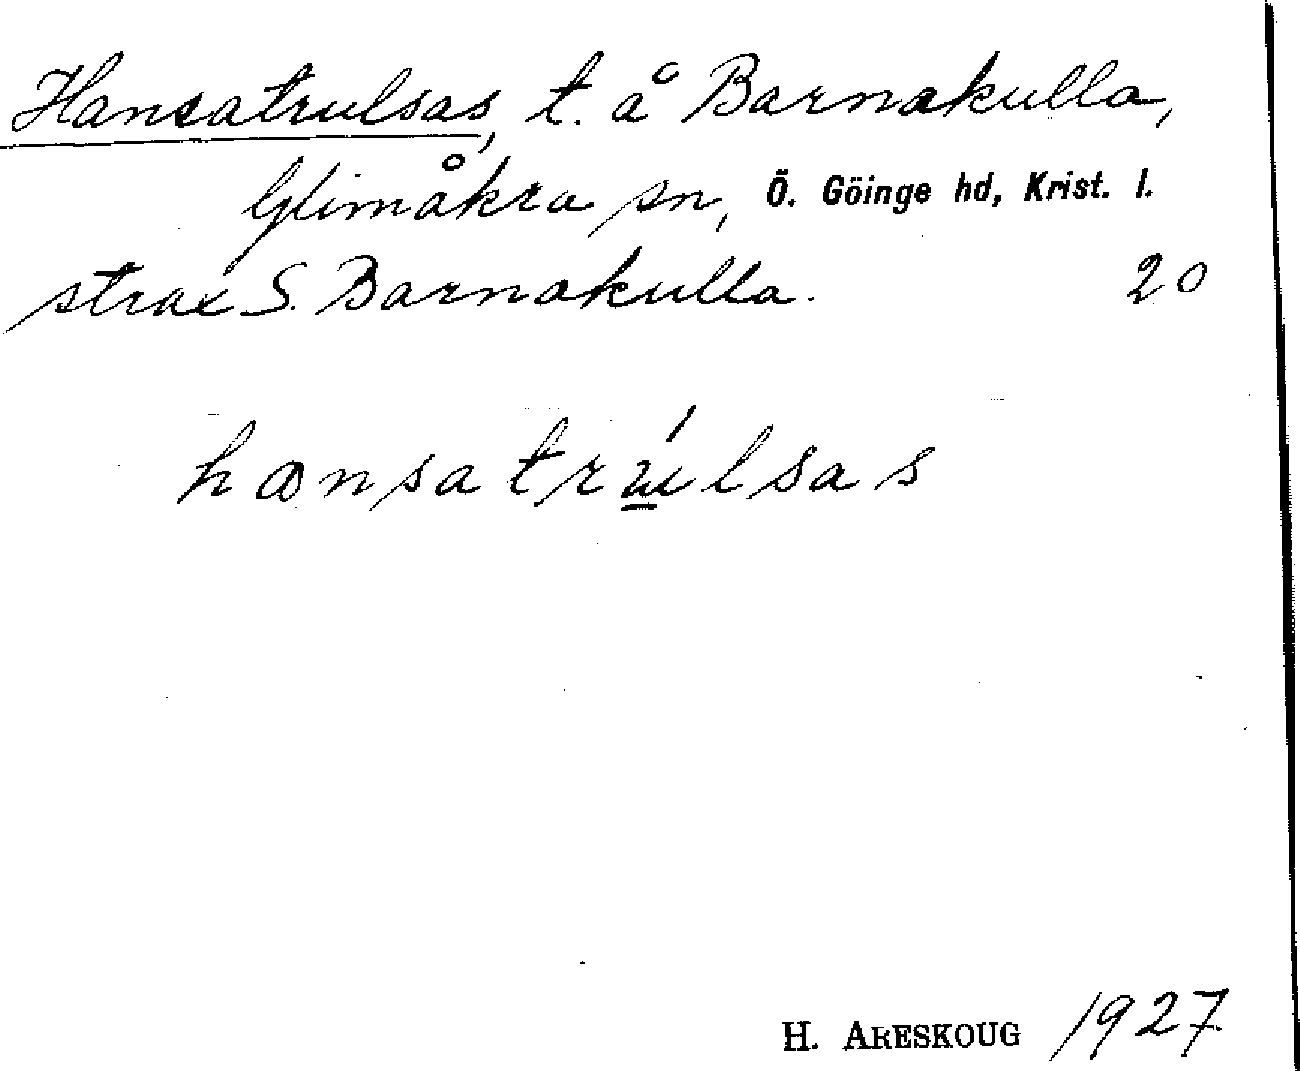 Hansatrulsas, t. å Barnakulla,
Glimåkra sn, Ö. Göinge hd, Krist. l.
strax S. Barnakulla. 20
hansatrúlsas
H. ARESKOUG 1927